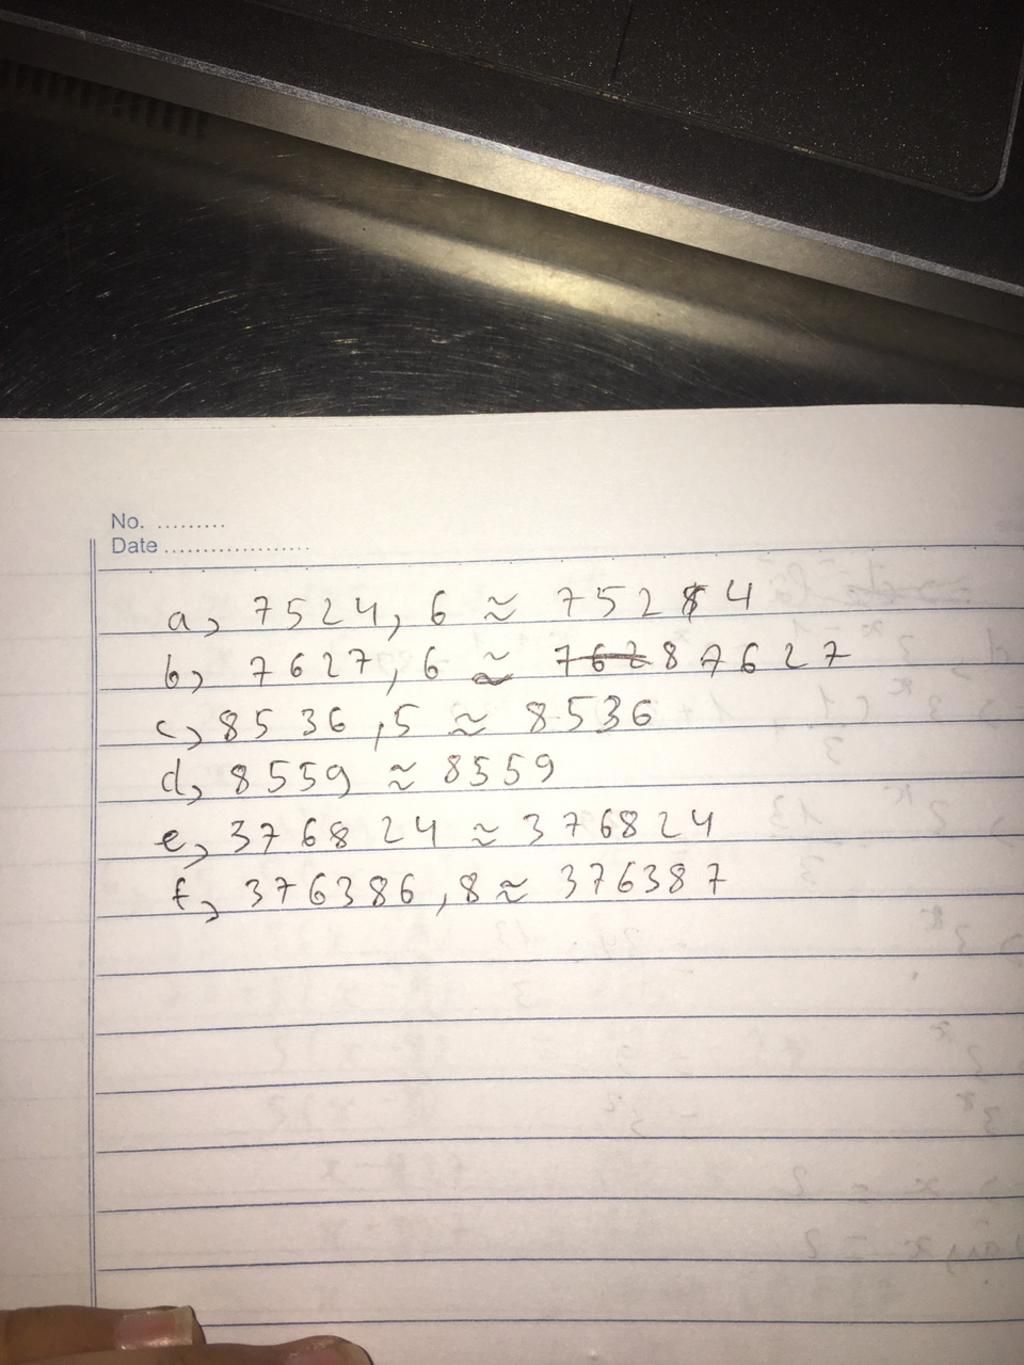 No. .........
Date ...................
a, 7524,6 ≈ 7524
b, 7627,6 ≈ 7627
c, 8536,5 ≈ 8536
d, 8559 ≈ 8559
e, 376824 ≈ 376824
f, 376386,8 ≈ 376387